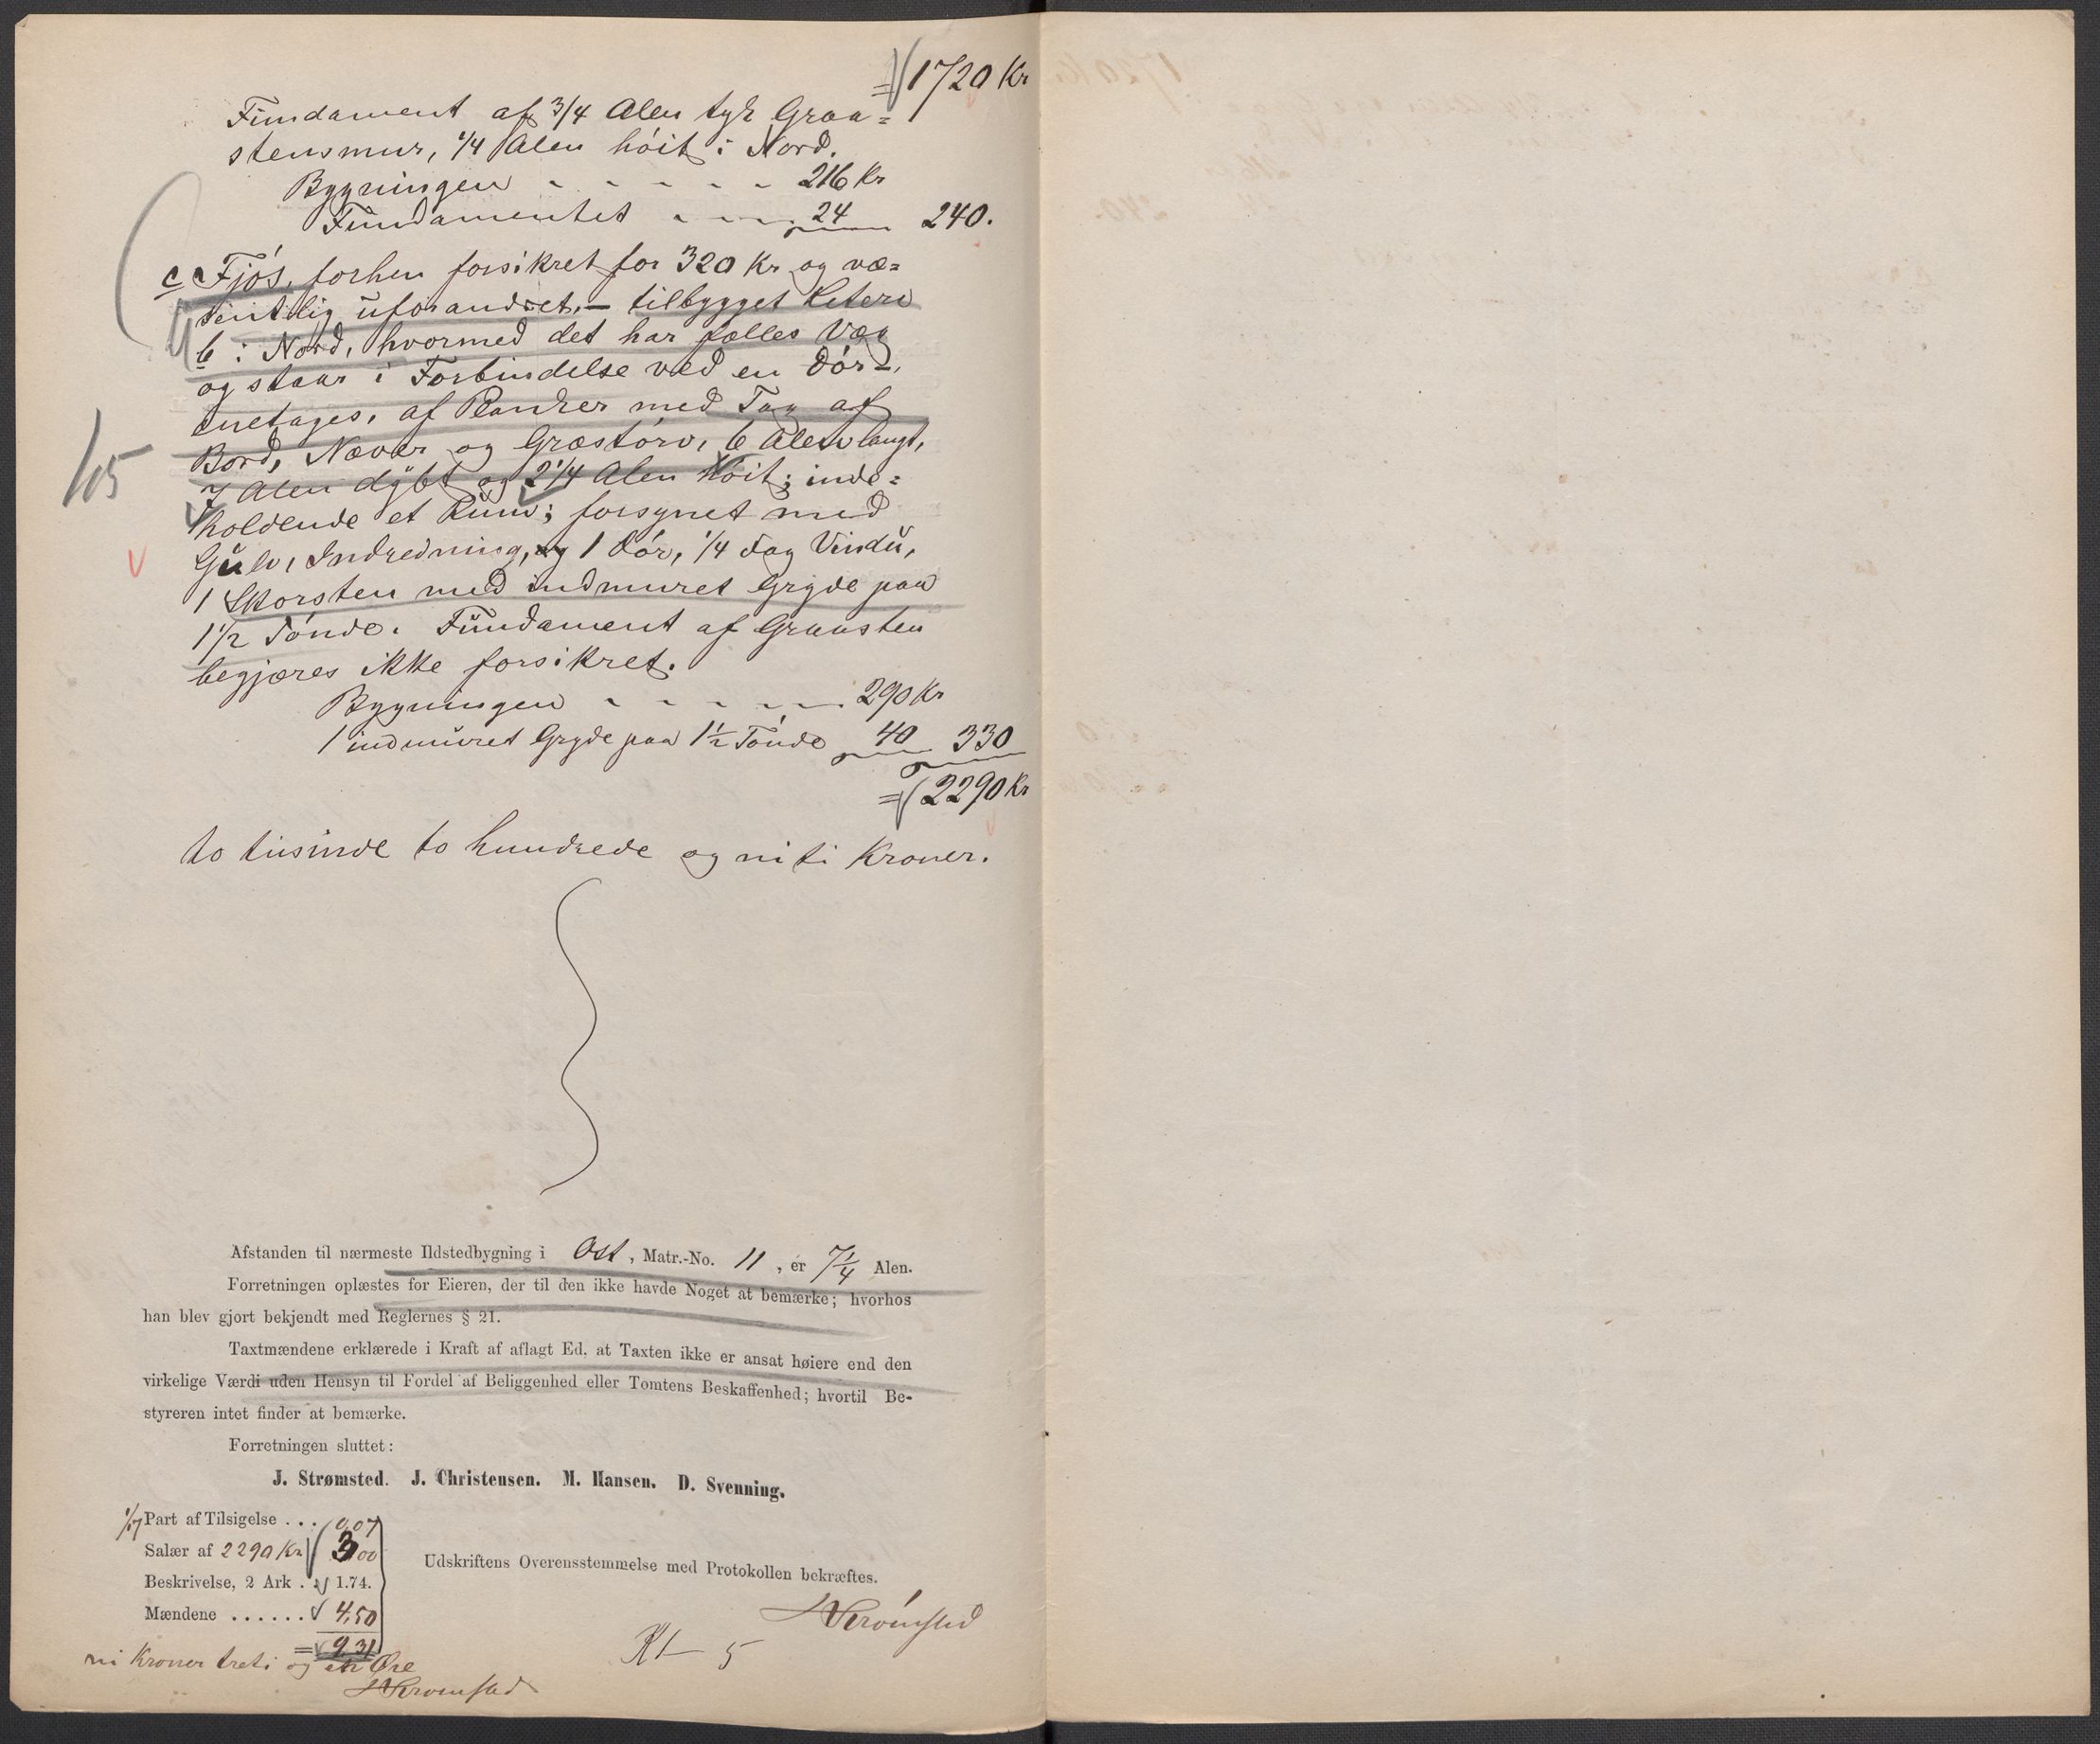 = 1720 Kr
Fundament af 3/4 Alen tyk Graa=
stensmur, 1/4 Alen höit i Nord.
Bygningen - - - - - 216 Kr
Fundamentet - - - - 24 240.
c Fjös, forhen forsikret for 320 Kr og væ=
sentlig uforandret, - tilbygget Litera
b i Nord, hvormed det har fælles Væg
og staar i Forbindelse ved en Dör -,
enetages, af Planker med Tag af
Bord, Næver og Græstörv, 6 Alen langt,
7 Alen dybt og 2 1/4 Alen höit; inde=
holdende et Rum; forsynet med
Gulv, Indredning, og 1 Dör, 1/4 Fag Vindu,
1 Skorsten med indmuret Gryde paa
1 1/2 Tönde. Fundament af Graasten
begjæres ikke forsikret.
Bygningen - - - - - 290 Kr
1 indmuret Gryde paa 1 1/2 Tönde 40 330
= 2290 Kr
105
to tusinde to hundrede og niti Kroner.
Afstanden til nærmeste Ildstedbygning i Ost, Matr.-No. 11, er 7 1/4 Alen.
Forretningen oplæstes for Eieren, der til den ikke havde Noget at bemærke; hvorhos
han blev gjort bekjendt med Reglernes § 21.
Taxtmændene erklærede i Kraft af aflagt Ed, at Taxten ikke er ansat høiere end den
virkelige Værdi uden Hensyn til Fordel af Beliggenhed eller Tomtens Beskaffenhed; hvortil Be-
styreren intet finder at bemærke.
Forretningen sluttet:
J. Strømsted. J. Christensen. M. Hansen. D. Svenning.
1/17 Part af Tilsigelse . . . 0,07
Salær af 2290 Kr 3,00
Beskrivelse, 2 Ark . 1.74.
Mændene . . . . . . 4,50
= 9,31
Udskriftens Overensstemmelse med Protokollen bekræftes.
JStrömsted
ni Kroner treti og en Øre
JStromsted
Kl 5